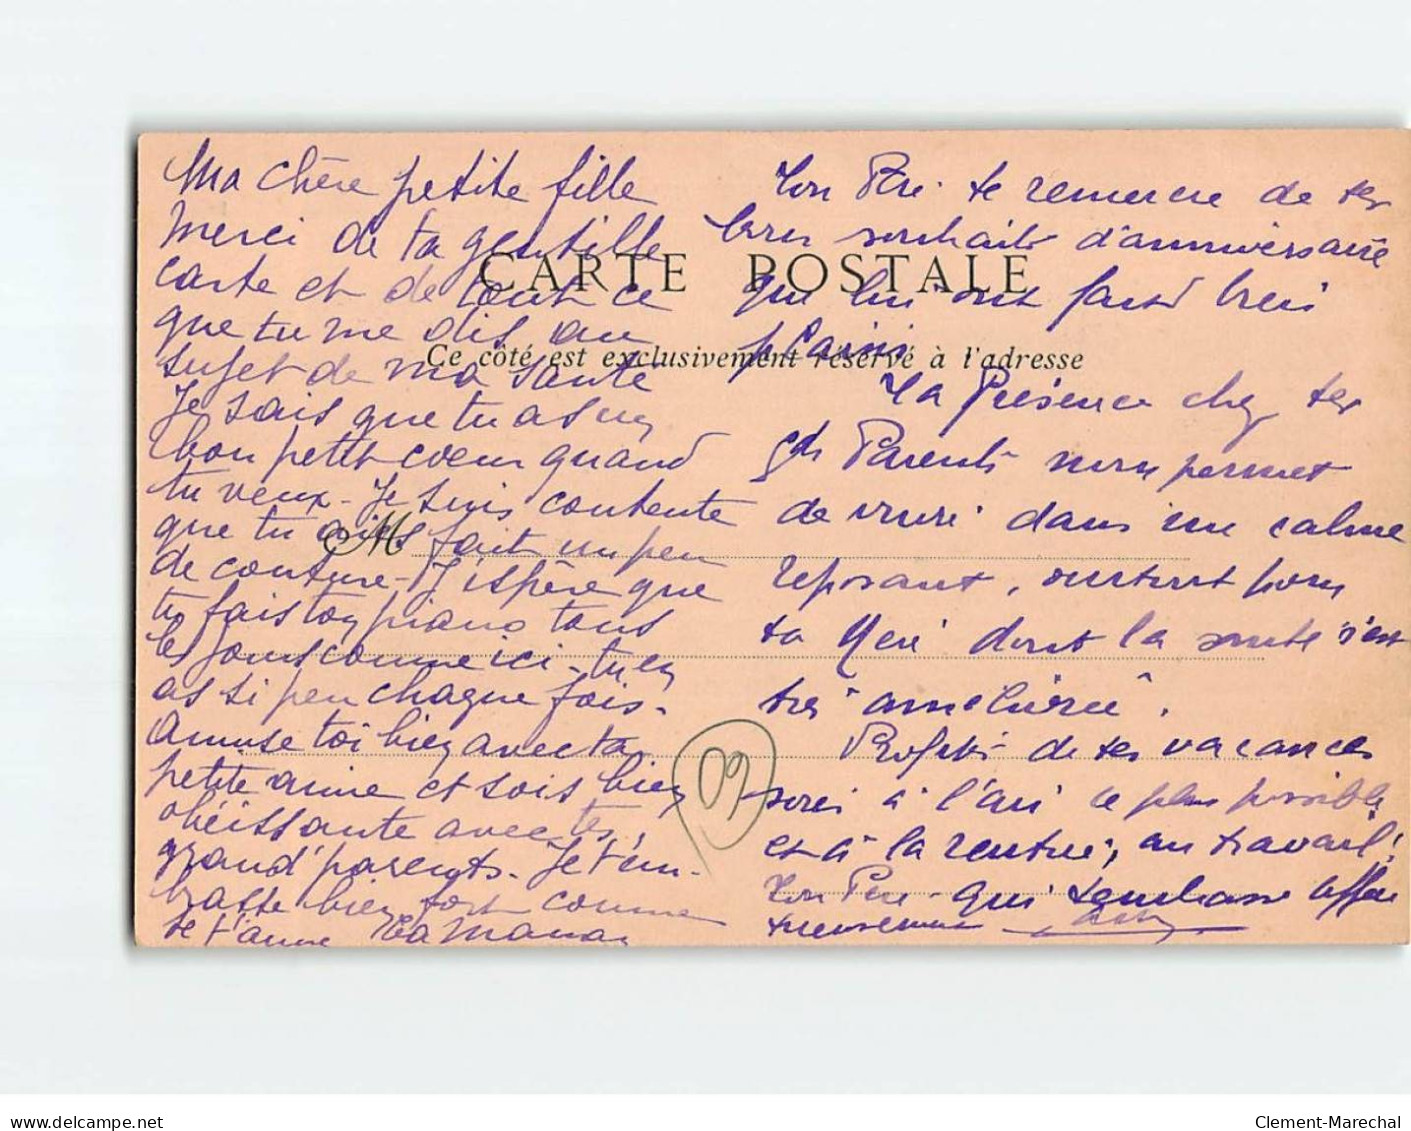 Ma chère petite fille
Merci de ta gentille
carte et de tout ce
que tu me dis au
sujet de ma santé
Je sais que tu as un
bon petit coeur quand
tu veux - Je suis contente
que tu aies fait un peu
de couture - J'espère que
tu fais ton piano tous
les jours comme ici - tu en
as si peu chaque fois -
Amuse toi bien avec ta
petite amie et sois bien
obéissante avec tes
grand'parents - Je t'em-
brasse bien fort comme
je t'aime Ta Maman
CARTE POSTALE
Ce côté est exclusivement réservé à l'adresse
M
09
Ton Père te remercie de tes
bons souhaits d'anniversaire
qui lui ont fait bien
plaisir
Ta Présence chez tes
gds Parents nous permet
de vivre dans un calme
reposant, surtout pour
ta Mère dont la santé s'est
très améliorée.
Profite de tes vacances
sois à l'air le plus possible
et à la rentrée, au travail!
Ton Père qui t'embrasse affec
tueusement
delcampe.net
Clement-Marechal